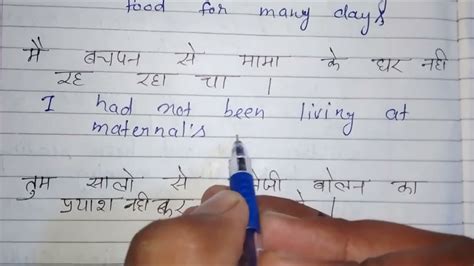 food for many days
मै बचपन से मामा के घर नही
रह रहा था ।
I had not been living at
maternal's
तुम सालो से बोलन का
प्रयाश नही कर